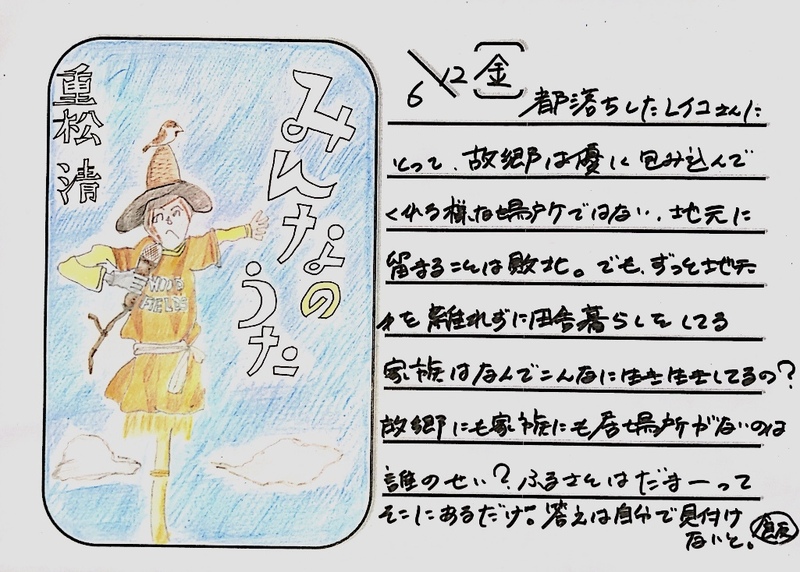 重松 清
みんなの
うた
FIELDS
6\12 金
都落ちしたレイコさんに
とって、故郷は優しく包み込んで
くれる様な場所ではない、地元に
留まることは敗北。でも、ずっと地元
を離れずに田舎暮らしをしてる
家族はなんでこんなに生き生きしてるの?
故郷にも家族にも居場所がないのは
誰のせい?ふるさとはだまーって
そこにあるだけ。答えは自分で見付け
ないと。